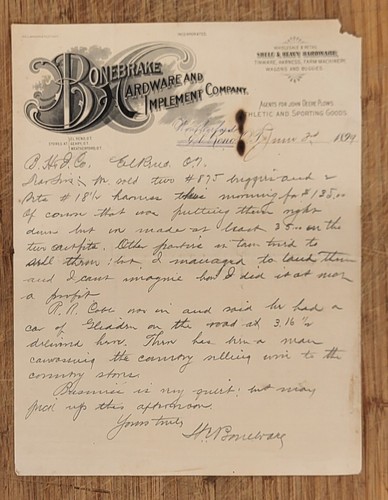 INCORPORATED
BONEBRAKE
HARDWARE AND
IMPLEMENT COMPANY.
WHOLESALE & RETAIL
SHELF & HEAVY HARDWARE,
TINWARE, HARNESS, FARM MACHINERY,
WAGONS AND BUGGIES.
AGENTS FOR JOHN DEERE PLOWS.
ATHLETIC AND SPORTING GOODS.
STORES AT
EL RENO, O.T.
GEARY, O.T.
WEATHERFORD, O.T.
June 3rd 1899
B. H. & I. Co. El Reno O.T.
Dear Sirs: We sold two # 875 buggies and 2
sets # 18½ harness this morning for $135.00
Of course that was putting them right
down but we made at least 35.00 on the
two outfits. Other parties in town tried to
sell them: but I managed to land them
and I cant imagine how I did it at
a profit
R. R. was in and said he had a
car of on the road at 3.16
delivered here. There has been a man
canvassing the country selling wire to the
country stores.
Business is very quiet: but may
pick up this afternoon.
Yours truly
Bonebrake